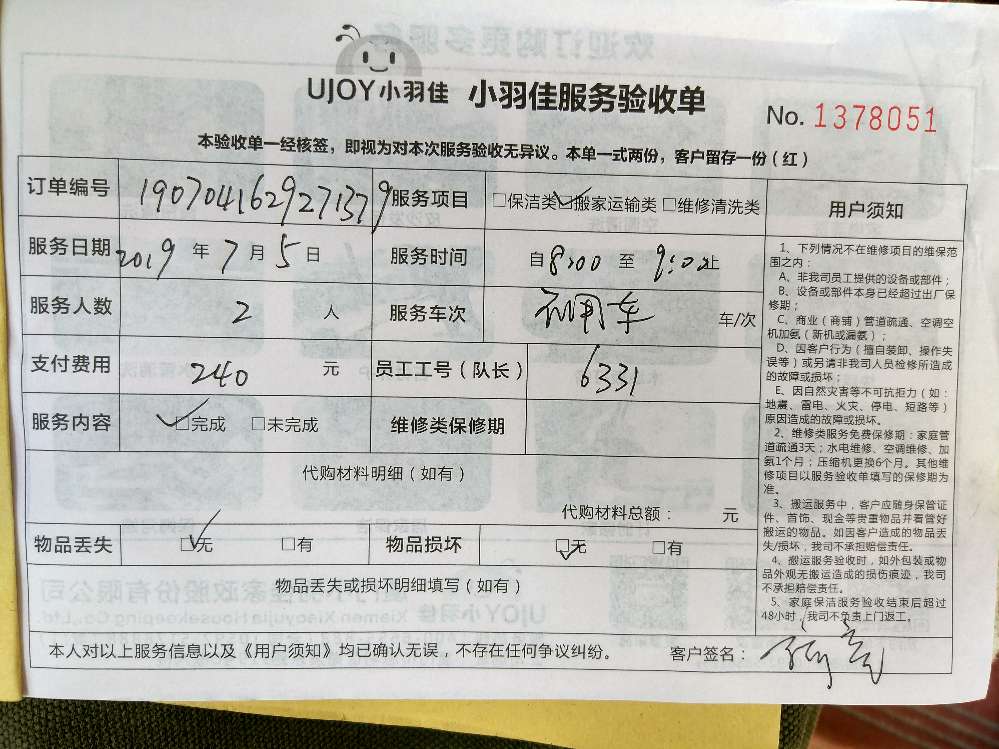 UJOY小羽佳 小羽佳服务验收单
No. 1378051
本验收单一经核签，即视为对本次服务验收无异议。本单一式两份，客户留存一份（红）
订单编号 1907041629271379 服务项目 □保洁类 ☑搬家运输类 □维修清洗类
服务日期 2019 年 7 月 5 日 服务时间 自 8:00 至 9:00 止
服务人数 2 人 服务车次 车/次
支付费用 240 元 员工工号（队长） 6331
服务内容 ☑完成 □未完成 维修类保修期
代购材料明细（如有）
代购材料总额： 元
物品丢失 ☑无 □有 物品损坏 ☑无 □有
物品丢失或损坏明细填写（如有）
用户须知
1、下列情况不在维修项目的维保范
围之内：
A、非我司员工提供的设备或部件；
B、设备或部件本身已经超过出厂保
修期；
C、商业（商铺）管道疏通、空调空
机加氨（新机或漏氨）；
D、因客户行为（擅自装卸、操作失
误等）或另请非我司人员检修所造成
的故障或损坏；
E、因自然灾害等不可抗拒力（如：
地震、雷电、火灾、停电、短路等）
原因造成的故障或损坏。
2、维修类服务免费保修期：家庭管
道疏通3天；水电维修、空调维修、加
氨1个月；压缩机更换6个月。其他维
修项目以服务验收单填写的保修期为
准。
3、搬运服务中，客户应随身保管证
件、首饰、现金等贵重物品并看管好
搬运的物品。如因客户造成的物品丢
失/损坏，我司不承担赔偿责任。
4、搬运服务验收时，如外包装或物
品外观无搬运造成的损伤痕迹，我司
不承担赔偿责任。
5、家庭保洁服务验收结束后超过
48小时，我司不负责上门返工。
本人对以上服务信息以及《用户须知》均已确认无误，不存在任何争议纠纷。 客户签名：